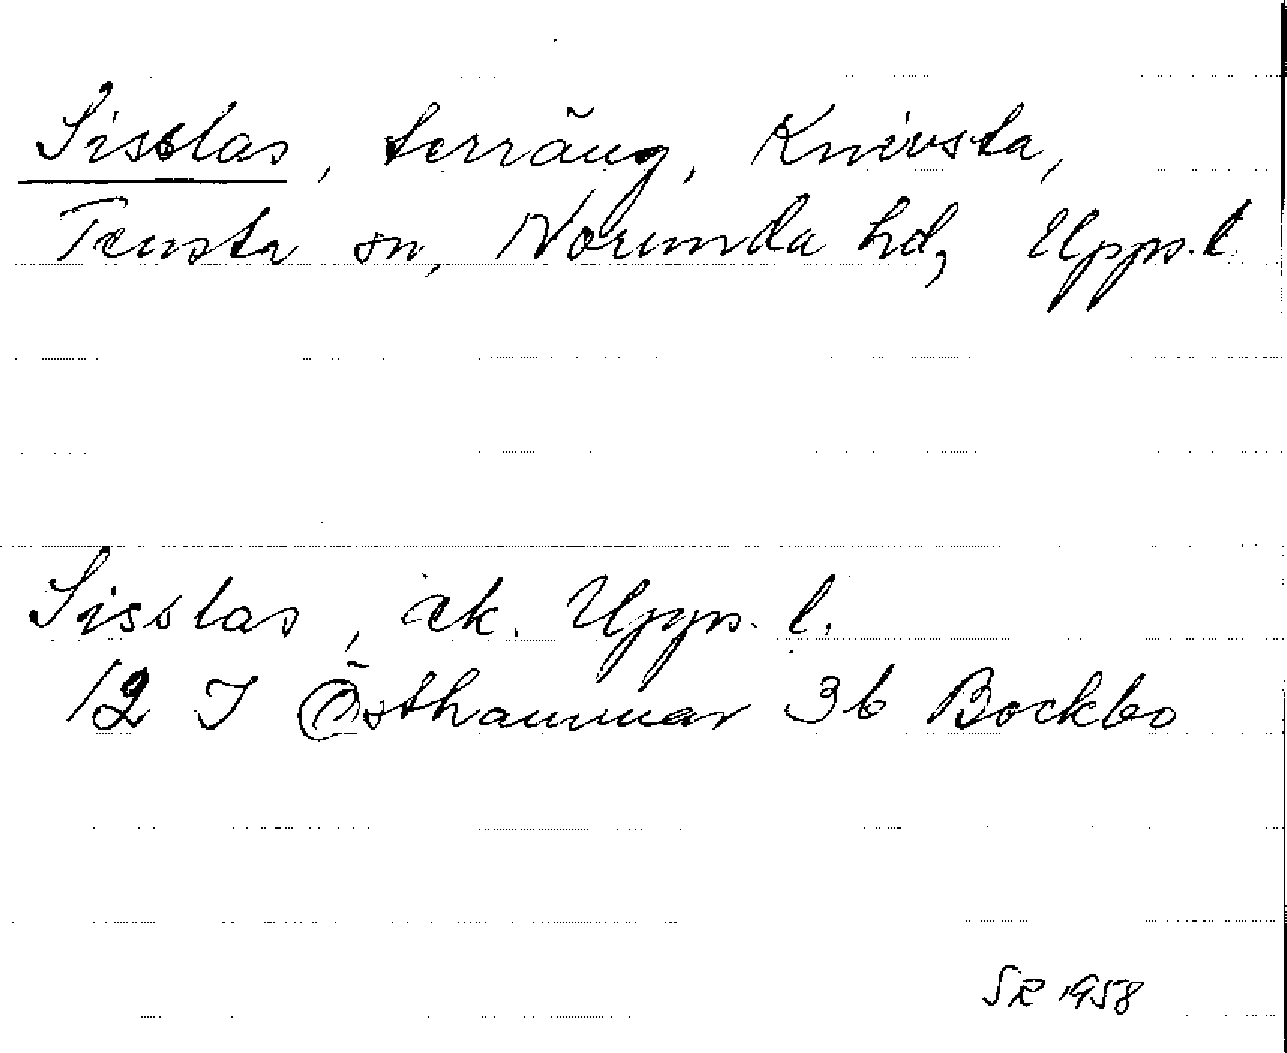 Sisslas, terräng, Knivsta,
Tensta sn, Norunda hd, Upps. l.
Sisslas, ek. Upps. l.
12 I Östhammar 3b Bockbo
SR 1958